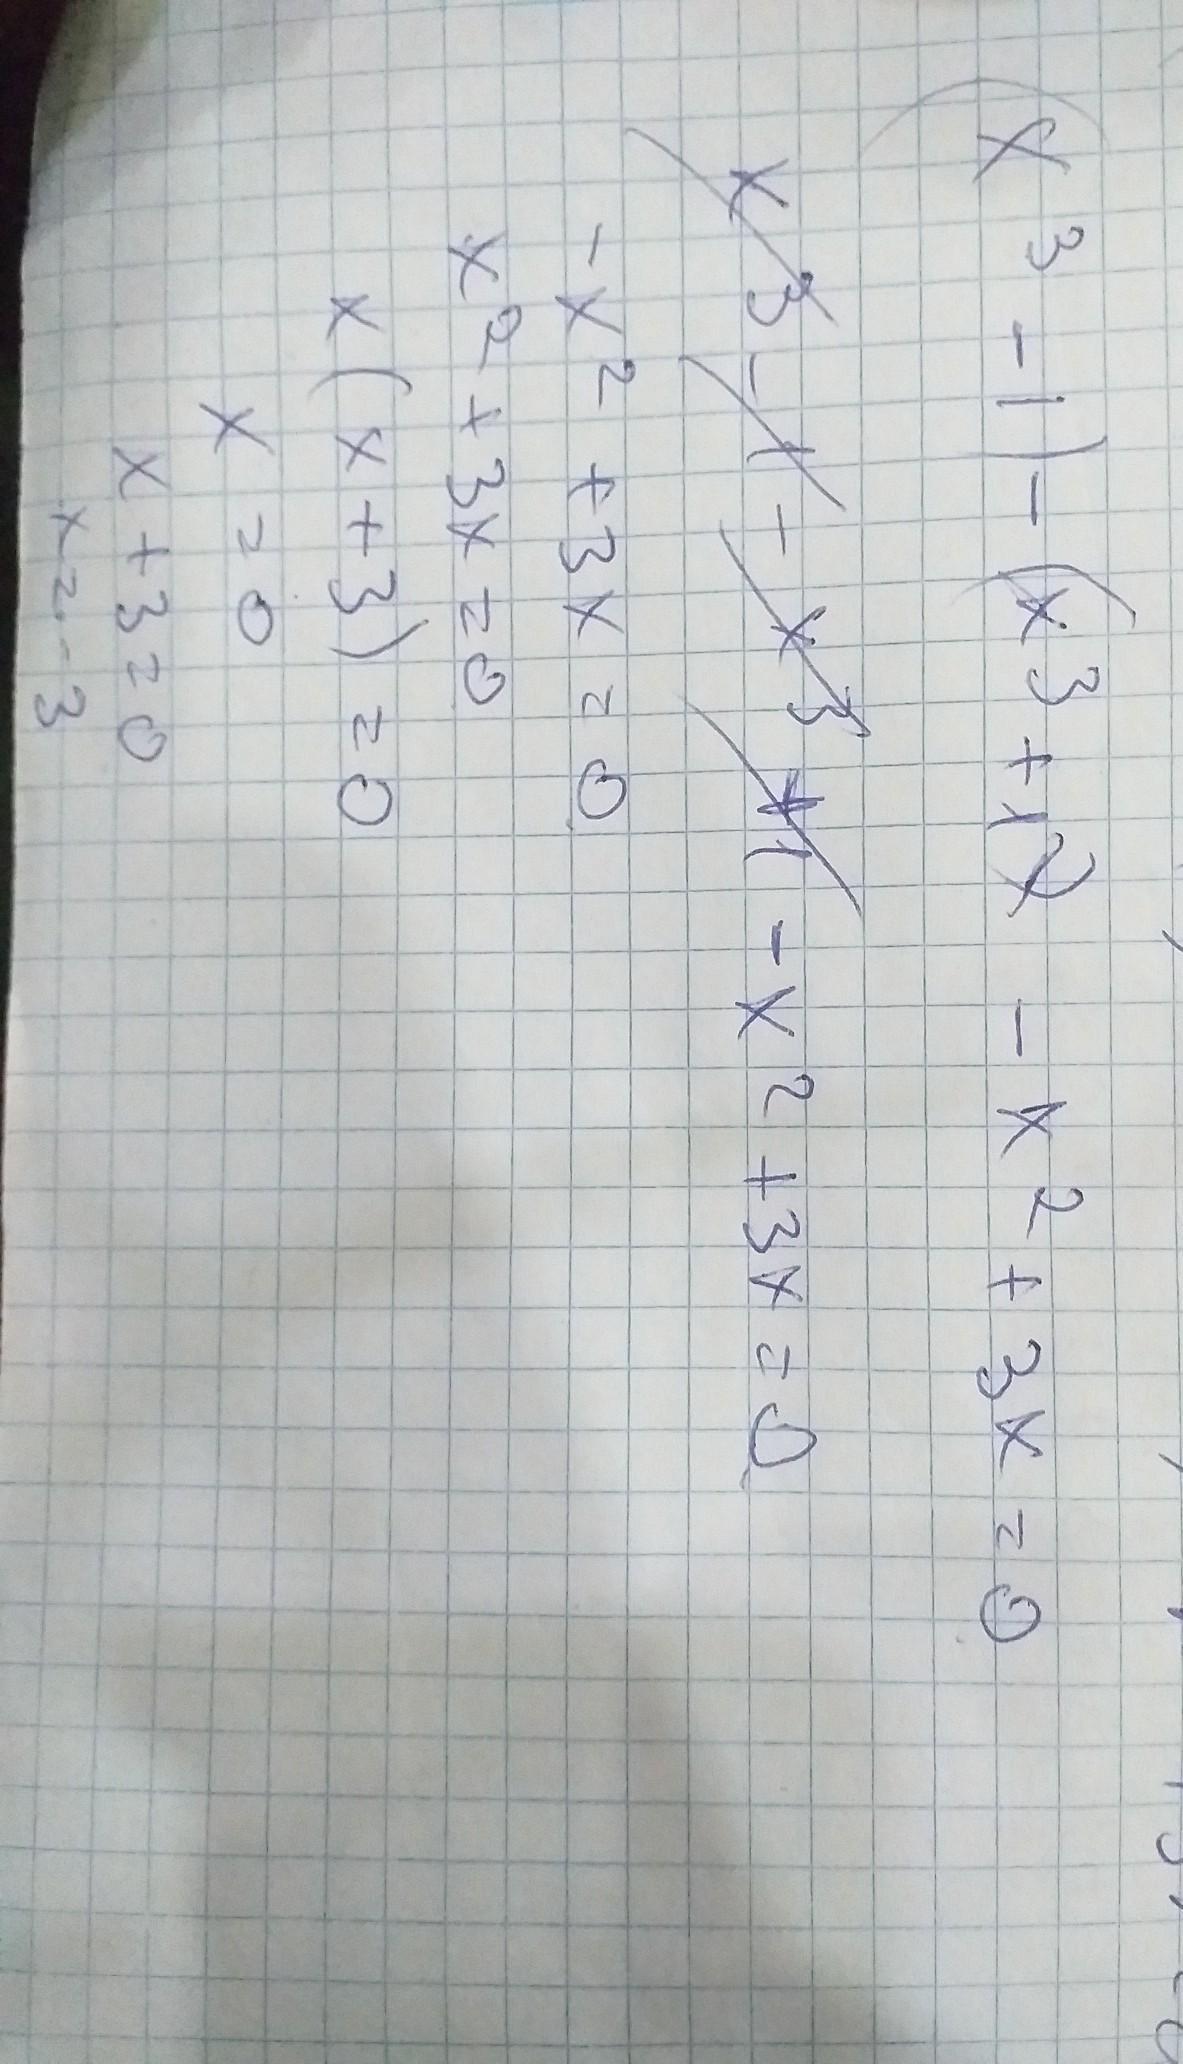 (x³ - 1) - (x³ + 1) - x² + 3x = 0
x³ - 1 - x³ + 1 - x² + 3x = 0
- x² + 3x = 0
x² + 3x = 0
x(x + 3) = 0
x = 0
x + 3 = 0
x = -3